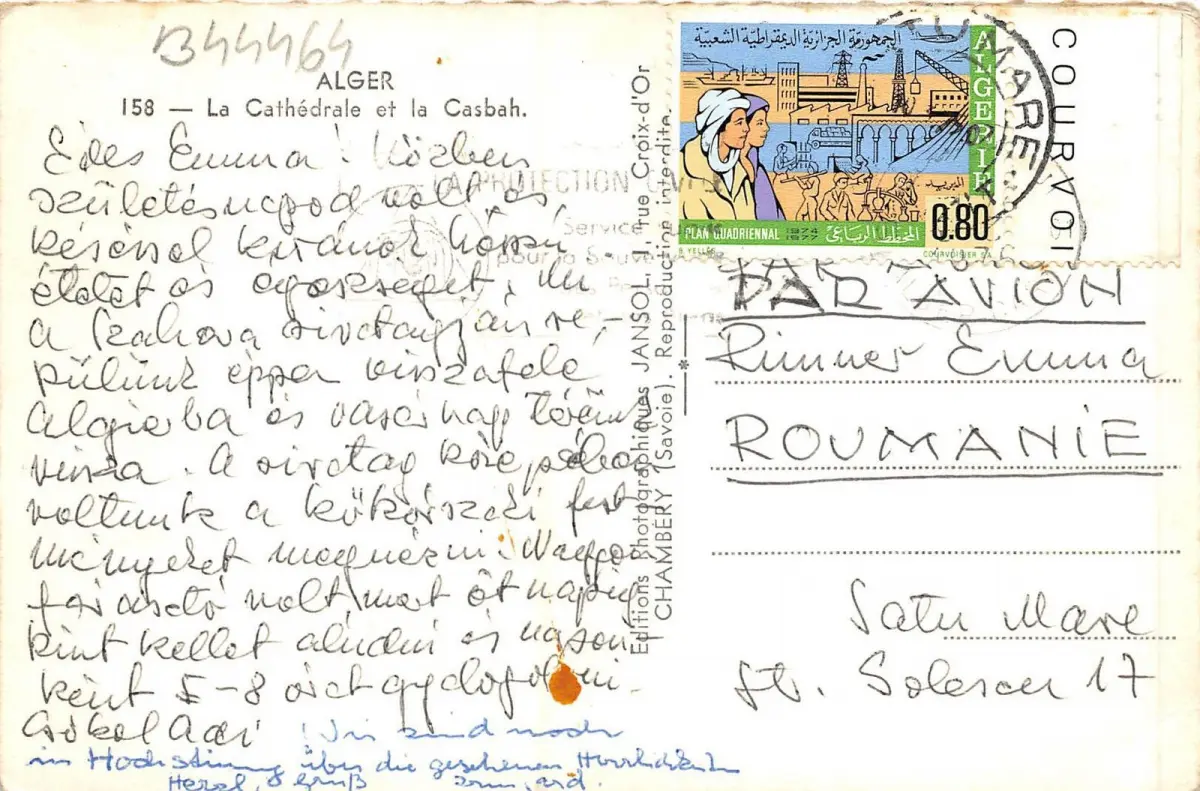 B44464
ALGER
158 — La Cathédrale et la Casbah.
Edes Emma! Közben
születésnapod volt és
késéssel kivánok hosszu
életet és egészséget. Mi
a Szahara sivatagjan re-
pülünk éppen visszafele
Algirba és vasárnap térünk
vissza. A sivatag közepében
voltunk a kőkorszaki fest
ményeket megnézni. Nagyon
fárasztó volt, mert öt napig
kint kellet aludni és napon
ként 5-8 órát gyalogolni.
Csókol Adi
Wir sind noch
in Hochstimmung über die gesehenen Herrlichkeiten
Herzl. Gruß
Editions Photographiques JANSOL, 1, rue Croix-d'Or
CHAMBÉRY (Savoie). Reproduction interdite.
LA PROTECTION CIVILE
Service
pour la Sauve
الجمهورية الجزائرية الديمقراطية الشعبية
ALGERIE
البريد
0.80
PLAN QUADRIENNAL 1974 1977 المخطط الرباعي
B YELLES COURVOISIER S.A.
COURVOI
TU MARE
PAR AVION
Rimner Emma
ROUMANIE
Satu Mare
St. Solescu 17